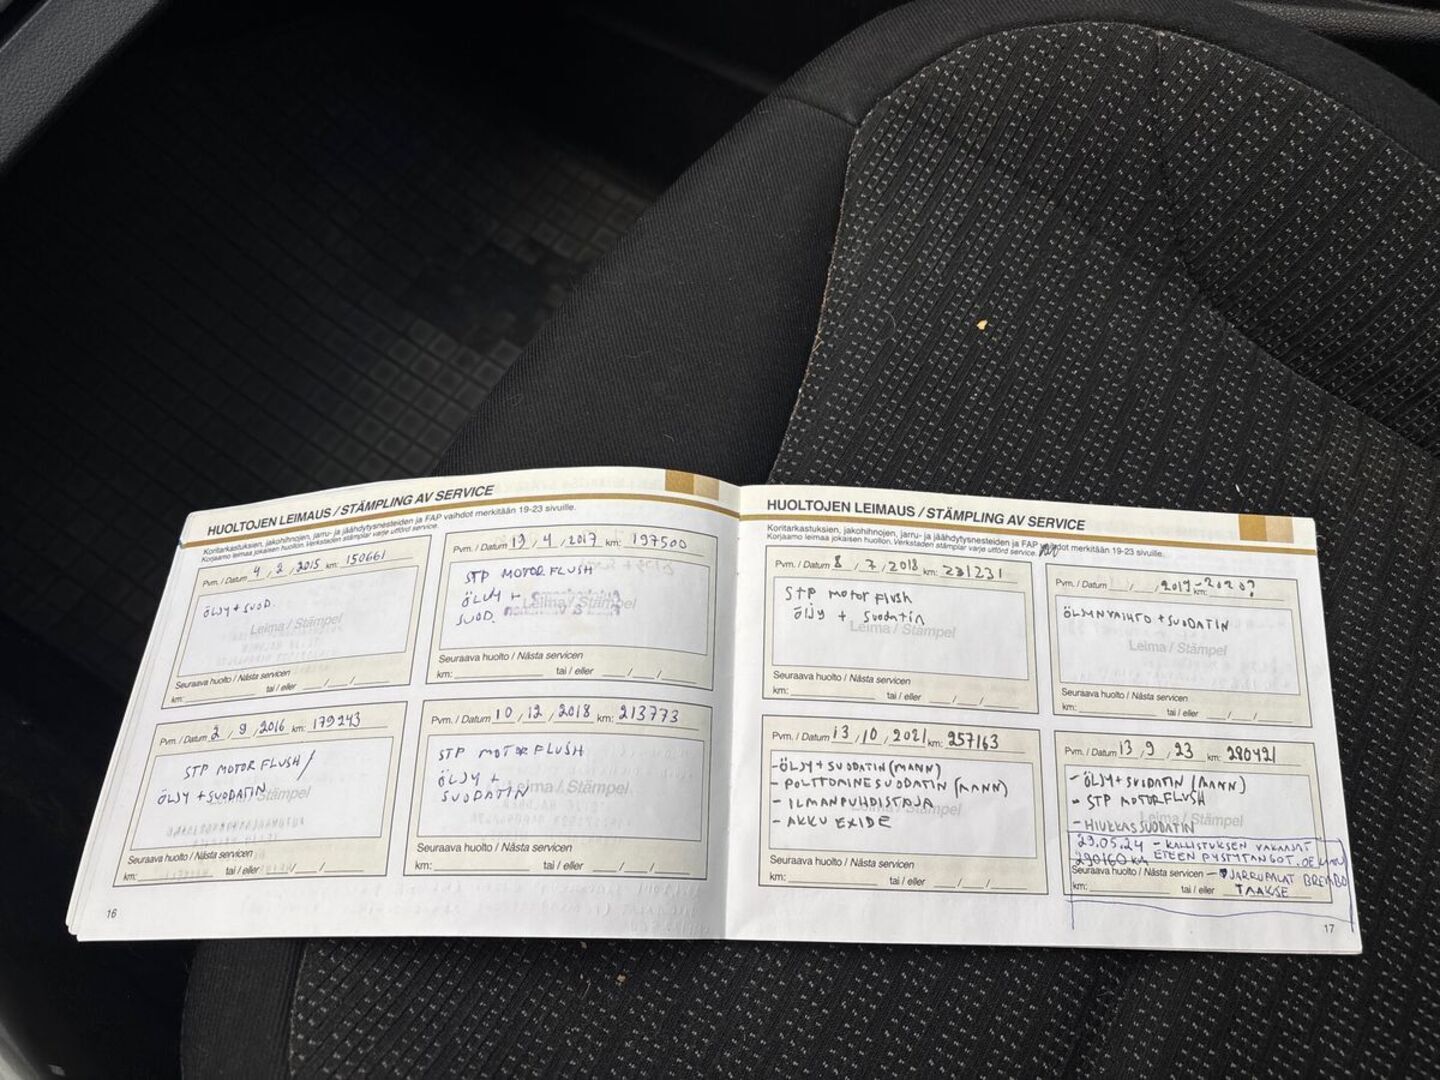 HUOLTOJEN LEIMAUS / STÄMPLING AV SERVICE
Koritarkastuksien, jakohihnojen, jarru- ja jäähdytysnesteiden ja FAP vaihdot merkitään 19-23 sivuille.
Korjaamo leimaa jokaisen huollon. Verkstaden stämplar varje utförd service.
Pvm. / Datum 4 / 2 / 2015 km: 150661
ÖLJY + SUOD.
Leima / Stämpel
Seuraava huolto / Nästa servicen
km: tai / eller / /
Pvm. / Datum 2 / 9 / 2016 km: 179243
STP MOTOR FLUSH /
ÖLJY + SUODATIN
Leima / Stämpel
Seuraava huolto / Nästa servicen
km: tai / eller / /
Pvm. / Datum 19 / 4 / 2017 km: 197500
STP MOTOR FLUSH
ÖLJY +
SUOD.
Leima / Stämpel
Seuraava huolto / Nästa servicen
km: tai / eller / /
Pvm. / Datum 10 / 12 / 2018 km: 213773
STP MOTOR FLUSH
ÖLJY +
SUODATIN
Leima / Stämpel
Seuraava huolto / Nästa servicen
km: tai / eller / /
16
HUOLTOJEN LEIMAUS / STÄMPLING AV SERVICE
Koritarkastuksien, jakohihnojen, jarru- ja jäähdytysnesteiden ja FAP vaihdot merkitään 19-23 sivuille.
Korjaamo leimaa jokaisen huollon. Verkstaden stämplar varje utförd service.
Pvm. / Datum 8 / 7 / 2018 km: 231231
STP motor flush
öljy + suodatin
Leima / Stämpel
Seuraava huolto / Nästa servicen
km: tai / eller / /
Pvm. / Datum 13 / 10 / 2021 km: 257163
- ÖLJY + SUODATIN (MANN)
- POLTTOAINESUODATIN (MANN)
- ILMANPUHDISTAJA
- AKKU EXIDE
Leima / Stämpel
Seuraava huolto / Nästa servicen
km: tai / eller / /
Pvm. / Datum / / 2019-2020? km:
ÖLJYNVAIHTO + SUODATIN
Leima / Stämpel
Seuraava huolto / Nästa servicen
km: tai / eller / /
Pvm. / Datum 13 / 9 / 23 km: 280421
- ÖLJY + SUODATIN (MANN)
- STP MOTORFLUSH
- HIUKKASSUODATIN
Leima / Stämpel
29.05.24 - KALLISTUKSEN VAKAAJAT
290160 KM ETEEN PYSTYTANGOT.
Seuraava huolto / Nästa servicen - JARRUPALAT BREMBO
km: tai / eller TAAKSE
17